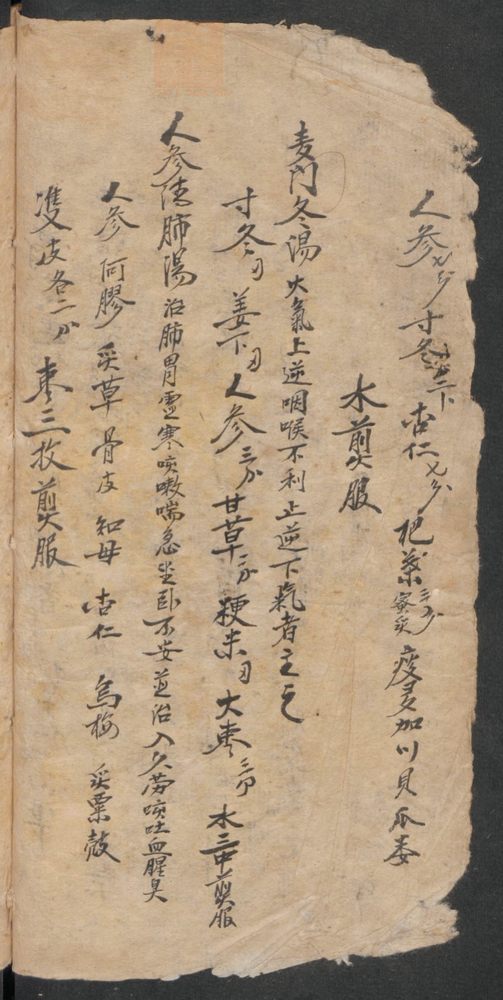 人參七分 寸冬 姜下 杏仁七分 杷葉三分蜜炙 痰多加川貝 瓜委
水煎服
麦門冬湯 火氣上逆咽喉不利止逆下氣者主之
寸冬 姜下 人參三分 甘草二分 粳米 大棗三分 水三中煎服
人參清肺湯 治肺胃虛寒咳嗽喘急坐卧不安並治久劳咳吐血腥臭
人參 阿膠 炙草 骨皮 知母 杏仁 烏梅 炙粟殼
双皮各二分 枣三枚煎服